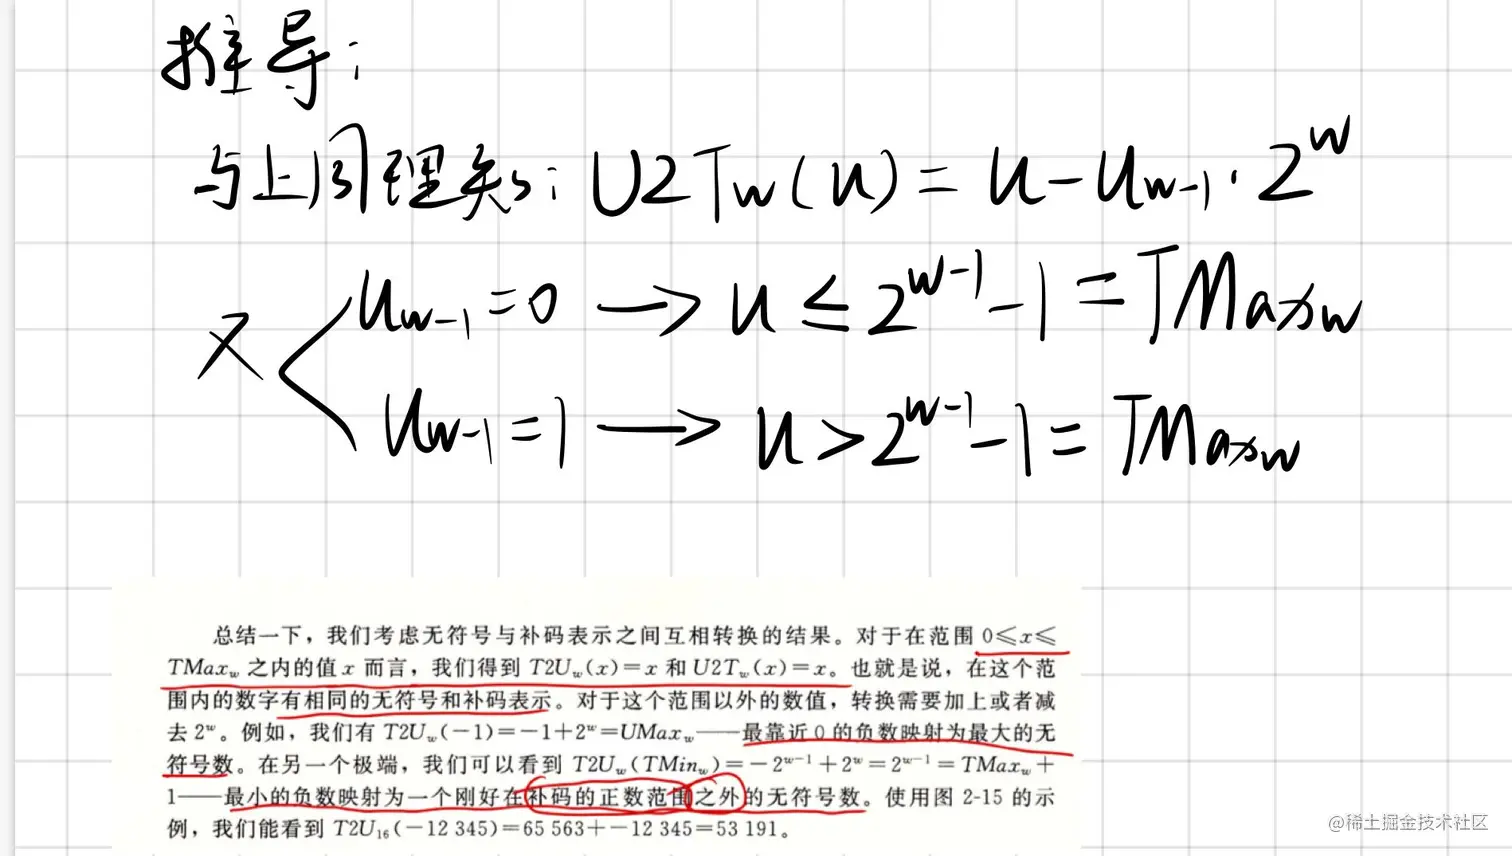 推导：
与上同理知：U2Tw(u) = u - u_{w-1}·2^w
又 u_{w-1}=0 → u ≤ 2^{w-1}-1 = TMax_w
u_{w-1}=1 → u > 2^{w-1}-1 = TMax_w
总结一下，我们考虑无符号与补码表示之间互相转换的结果。对于在范围 0≤x≤
TMax_w 之内的值 x 而言，我们得到 T2U_w(x)=x 和 U2T_w(x)=x。也就是说，在这个范
围内的数字有相同的无符号和补码表示。对于这个范围以外的数值，转换需要加上或者减
去 2^w。例如，我们有 T2U_w(-1)=-1+2^w=UMax_w——最靠近 0 的负数映射为最大的无
符号数。在另一个极端，我们可以看到 T2U_w(TMin_w)=-2^{w-1}+2^w=2^{w-1}=TMax_w+
1——最小的负数映射为一个刚好在补码的正数范围之外的无符号数。使用图 2-15 的示
例，我们能看到 T2U_16(-12 345)=65 563+-12 345=53 191。
@稀土掘金技术社区